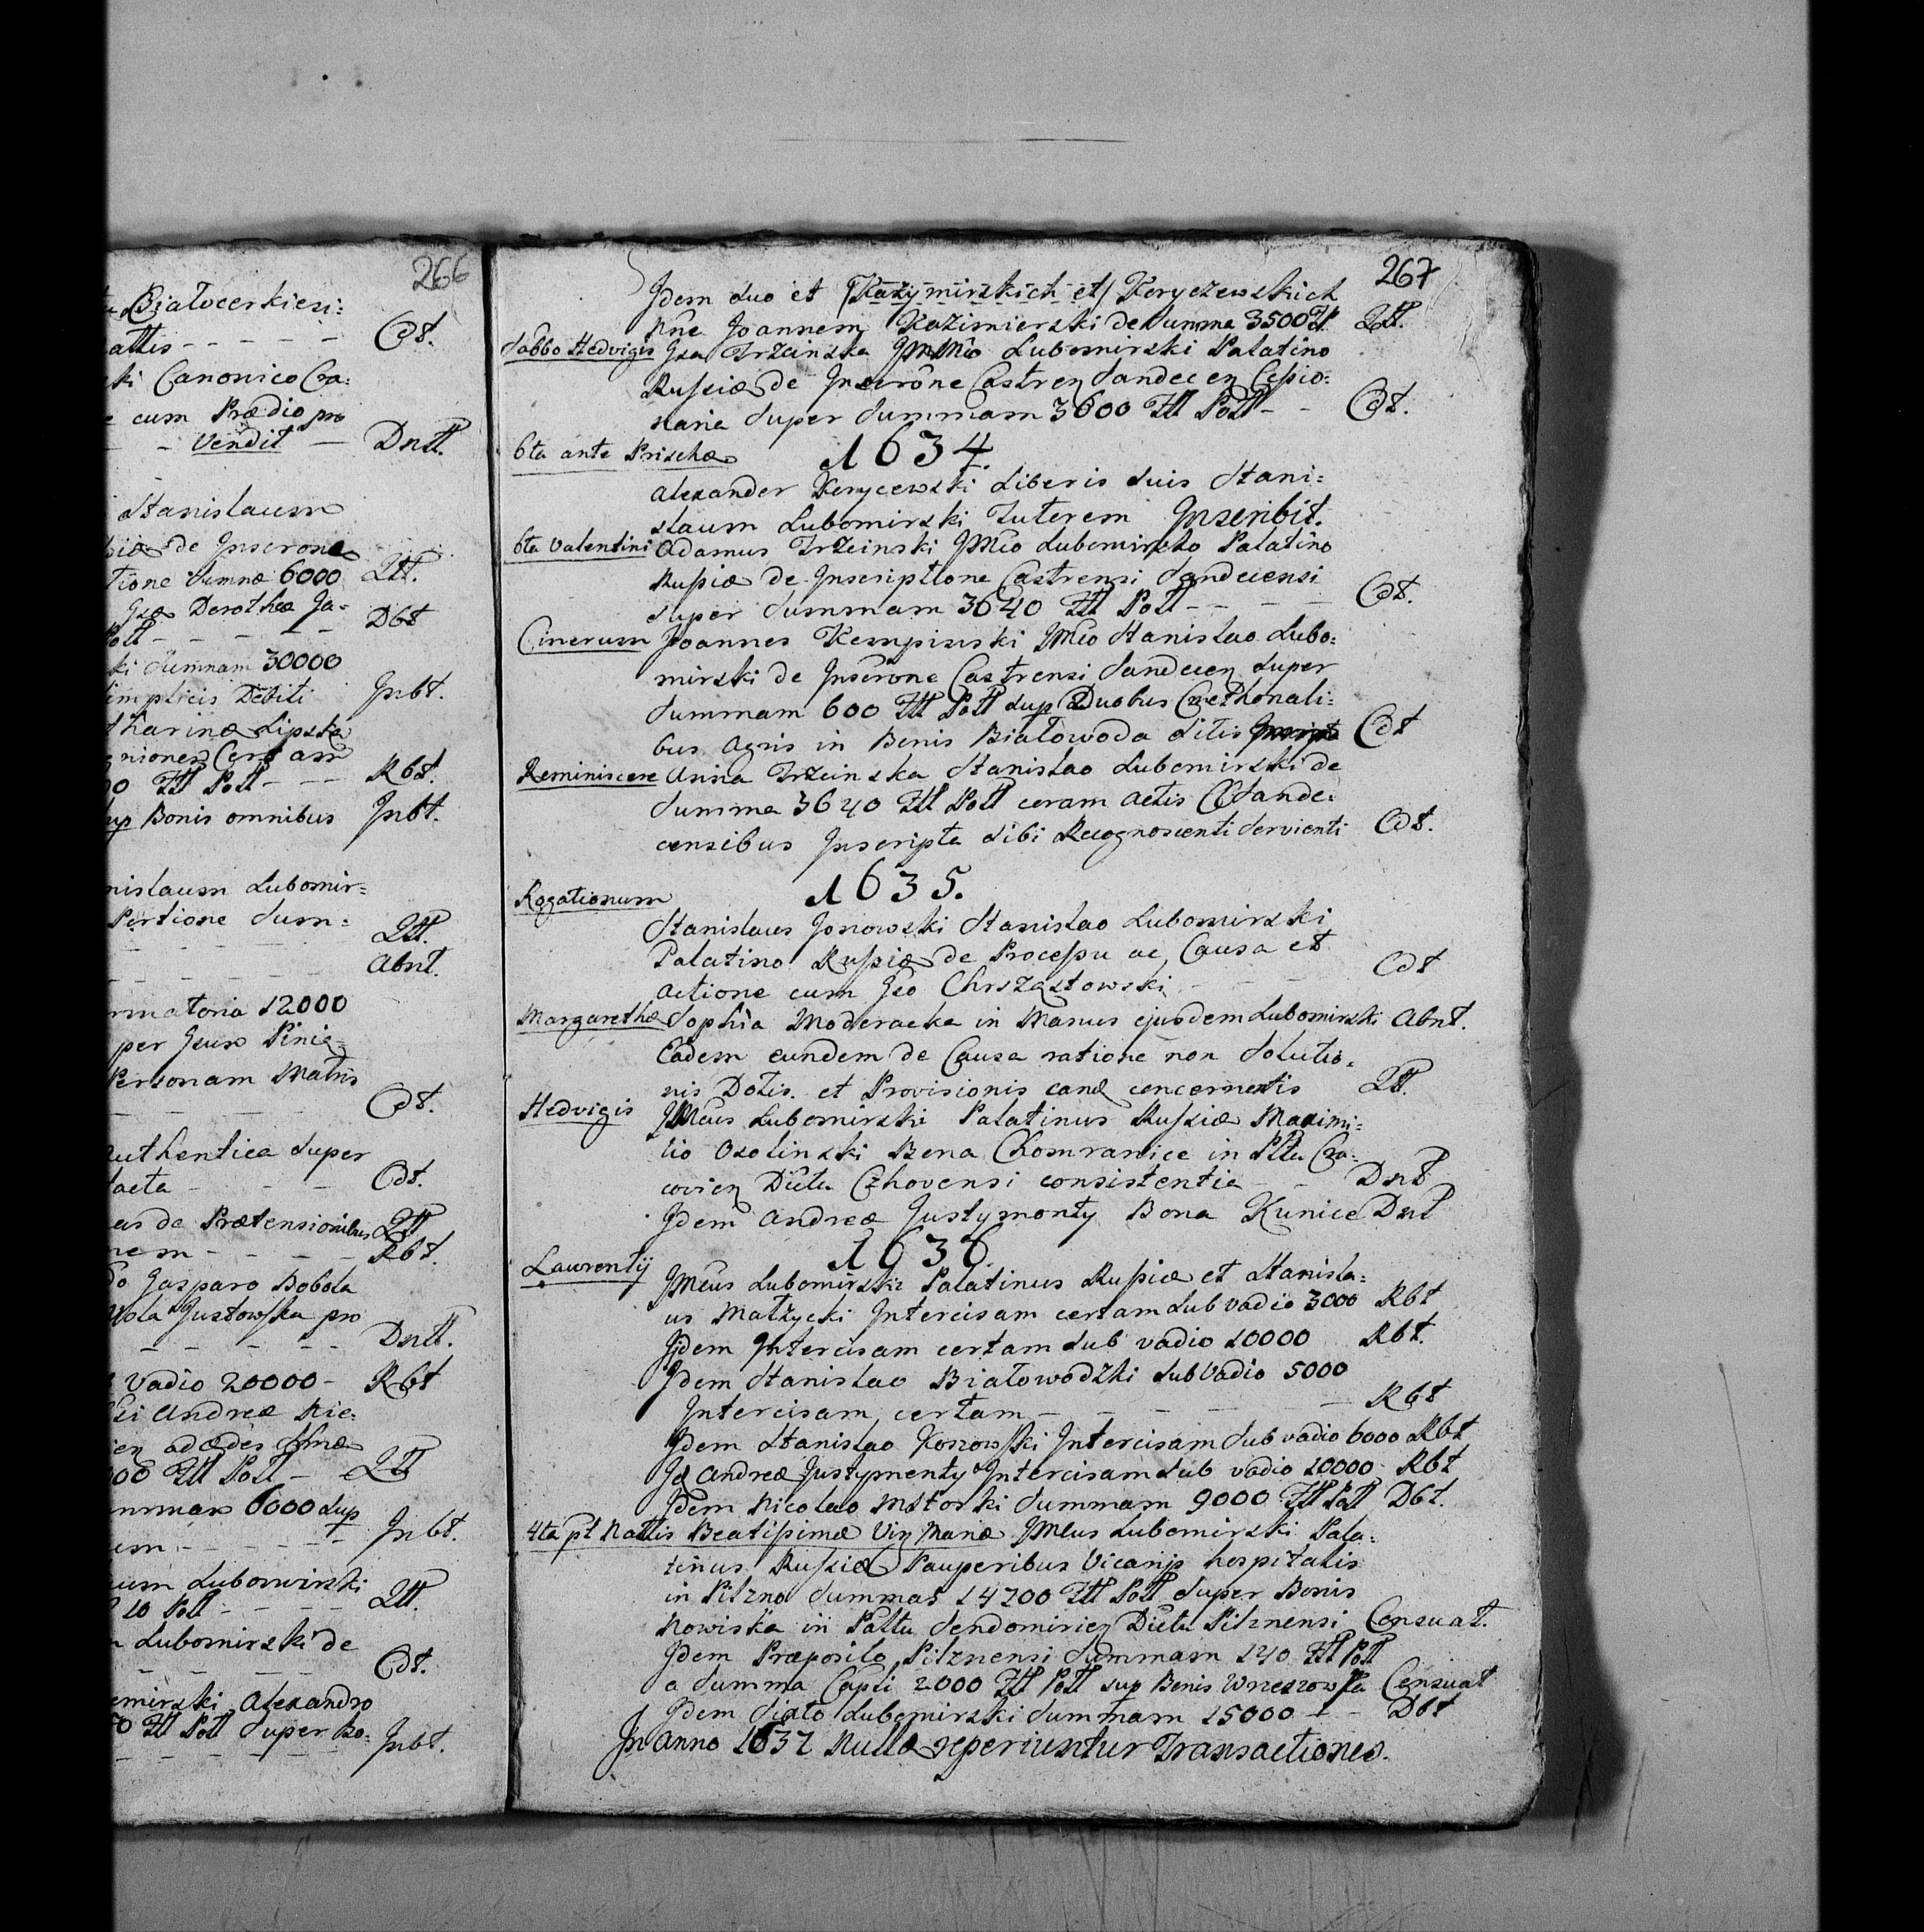 266
Białocerkien:
attis - - - - - Cdt.
ki Canonico Cra:
e cum Prædio pro
- - Vendit - Dntt.
Stanislaum
de Inscrone
tione Sumæ 6000 Qtt.
Gsæ Dorothea Ja-
Poll - - - - - Dbt
ki Summam 30000
implicis Debiti Inbt.
tharinæ Lipska
gniones Certam
00 Ztt Poll - - - Rbt.
sup Bonis omnibus Inbt.
nislaum Lubomir=
Portione Sum= Qtt.
- - - - - Abnt.
rmatoria 12000
per Pinią-
Personam Matris
- - - - - Cdt.
Authentica Super
facta - - - - Cdt.
as de Prætensionibus Qtt
nem - - - - - Rbt.
do Gasparo Bobola
Wola Justowska pro
- - - - - Dntt.
Vadio 20000 - Rbt
Andreæ Nie:
ad ædes
000 Ztt Poll - Qtt
ummam 6000 Sup
um - - - - - Inbt.
um Lubomirski
10 Poll - - - - Qtt.
n Lubomirski de
- - - - - Cdt.
omirski Alexandro
0 Ztt Poll Super Bo: Inbt.
267
Idem Suo et (Kazymirskich et) Koryczewskich
nne Joannem Kazimierski de Summa 3500 Zt. Qtt.
Sabbo Hedvigis Gsa Trzcinska Lubomirski Palatino
Russiæ de Inscrone Castren Sandecen Cessio:
naria Super Summam 3600 Ztt Poll - - Cdt.
6ta ante Priscæ 1634.
Alexander Korycewski Liberis Suis Stani:
slaum Lubomirski Tutorem Inscribit.
6ta Valentini Adamus Trzcinski Lubomirsko Palatino
Russiæ de Inscriptione Castrensi Sandecensi
Super Summam 3640 Ztt Poll - - - Cdt.
Cinerum Joannes Kempinski Stanislao Lubo:
mirski de Inscrone Castrensi Sandecen Super
Summam 600 Ztt Poll sup Duobus Cmethonali:
bus Agris in Bonis Białowoda Sitis Cdt
Reminiscere Anna Trzcinska Stanislao Lubomirski de
Summa 3640 Ztt Poll coram Actis CSande:
censibus Inscripta Sibi Recognoscenti Servienti Cdt.
Rogationum 1635.
Stanislaus Jonowski Stanislao Lubomirski
Palatino Russiæ de Processu ac Causa et
actione cum Gso Chrszastowski - - - Cdt
Margarethæ Sophia Moderacka in Manus ejusdem Lubomirski Abnt.
Eadem eundem de Causa ratione non Solutio-
nis Dotis et Provisionis eand concernentis Qtt.
Hedvigis Lubomirski Palatinus Russiæ Maximi:
lio Osolinski Bona Chomranice in Pltu Cra:
covien Dictu Czhovensi consistentia - - Dnt
Idem Andreæ Justymonty Bona Kunice Dnt
1636.
Laurentij Lubomirski Palatinus Russiæ et Stanisla:
us Małzycki Intercisam certam Sub vadio 3000 Rbt
Idem Intercisam certam Sub vadio 10000 Rbt.
Idem Stanislao Białowodzki Sub Vadio 5000
Intercisam certam - - - - - Rbt
Idem Stanislao Kossowski Intercisam Sub vadio 6000 Rbt
Id Andreæ Justymonty Intercisam Sub vadio 10000 Rbt
Idem Nicolao Mstorki Summam 9000 Ztt Poll Dbt.
4ta pt Nattis Beatissimæ Vir Mariæ Lubomirski Pala:
tinus Russiæ Pauperibus Vicarijs hospitalis
in Pilzno Summas 14200 Ztt Poll Super Bonis
Nowiska in Palttu Sendomirien Dictu Pilznensi Censuat.
Idem Præposito Pilznensi Summam 140 Ztt Poll
a Summa Capli 2000 Ztt Poll sup Bonis Wrzeszowska Censuat
Idem Sixto Lubomirski Summam 15000 - - Dbt
In Anno 1637 Nullæ reperiuntur Transactiones.